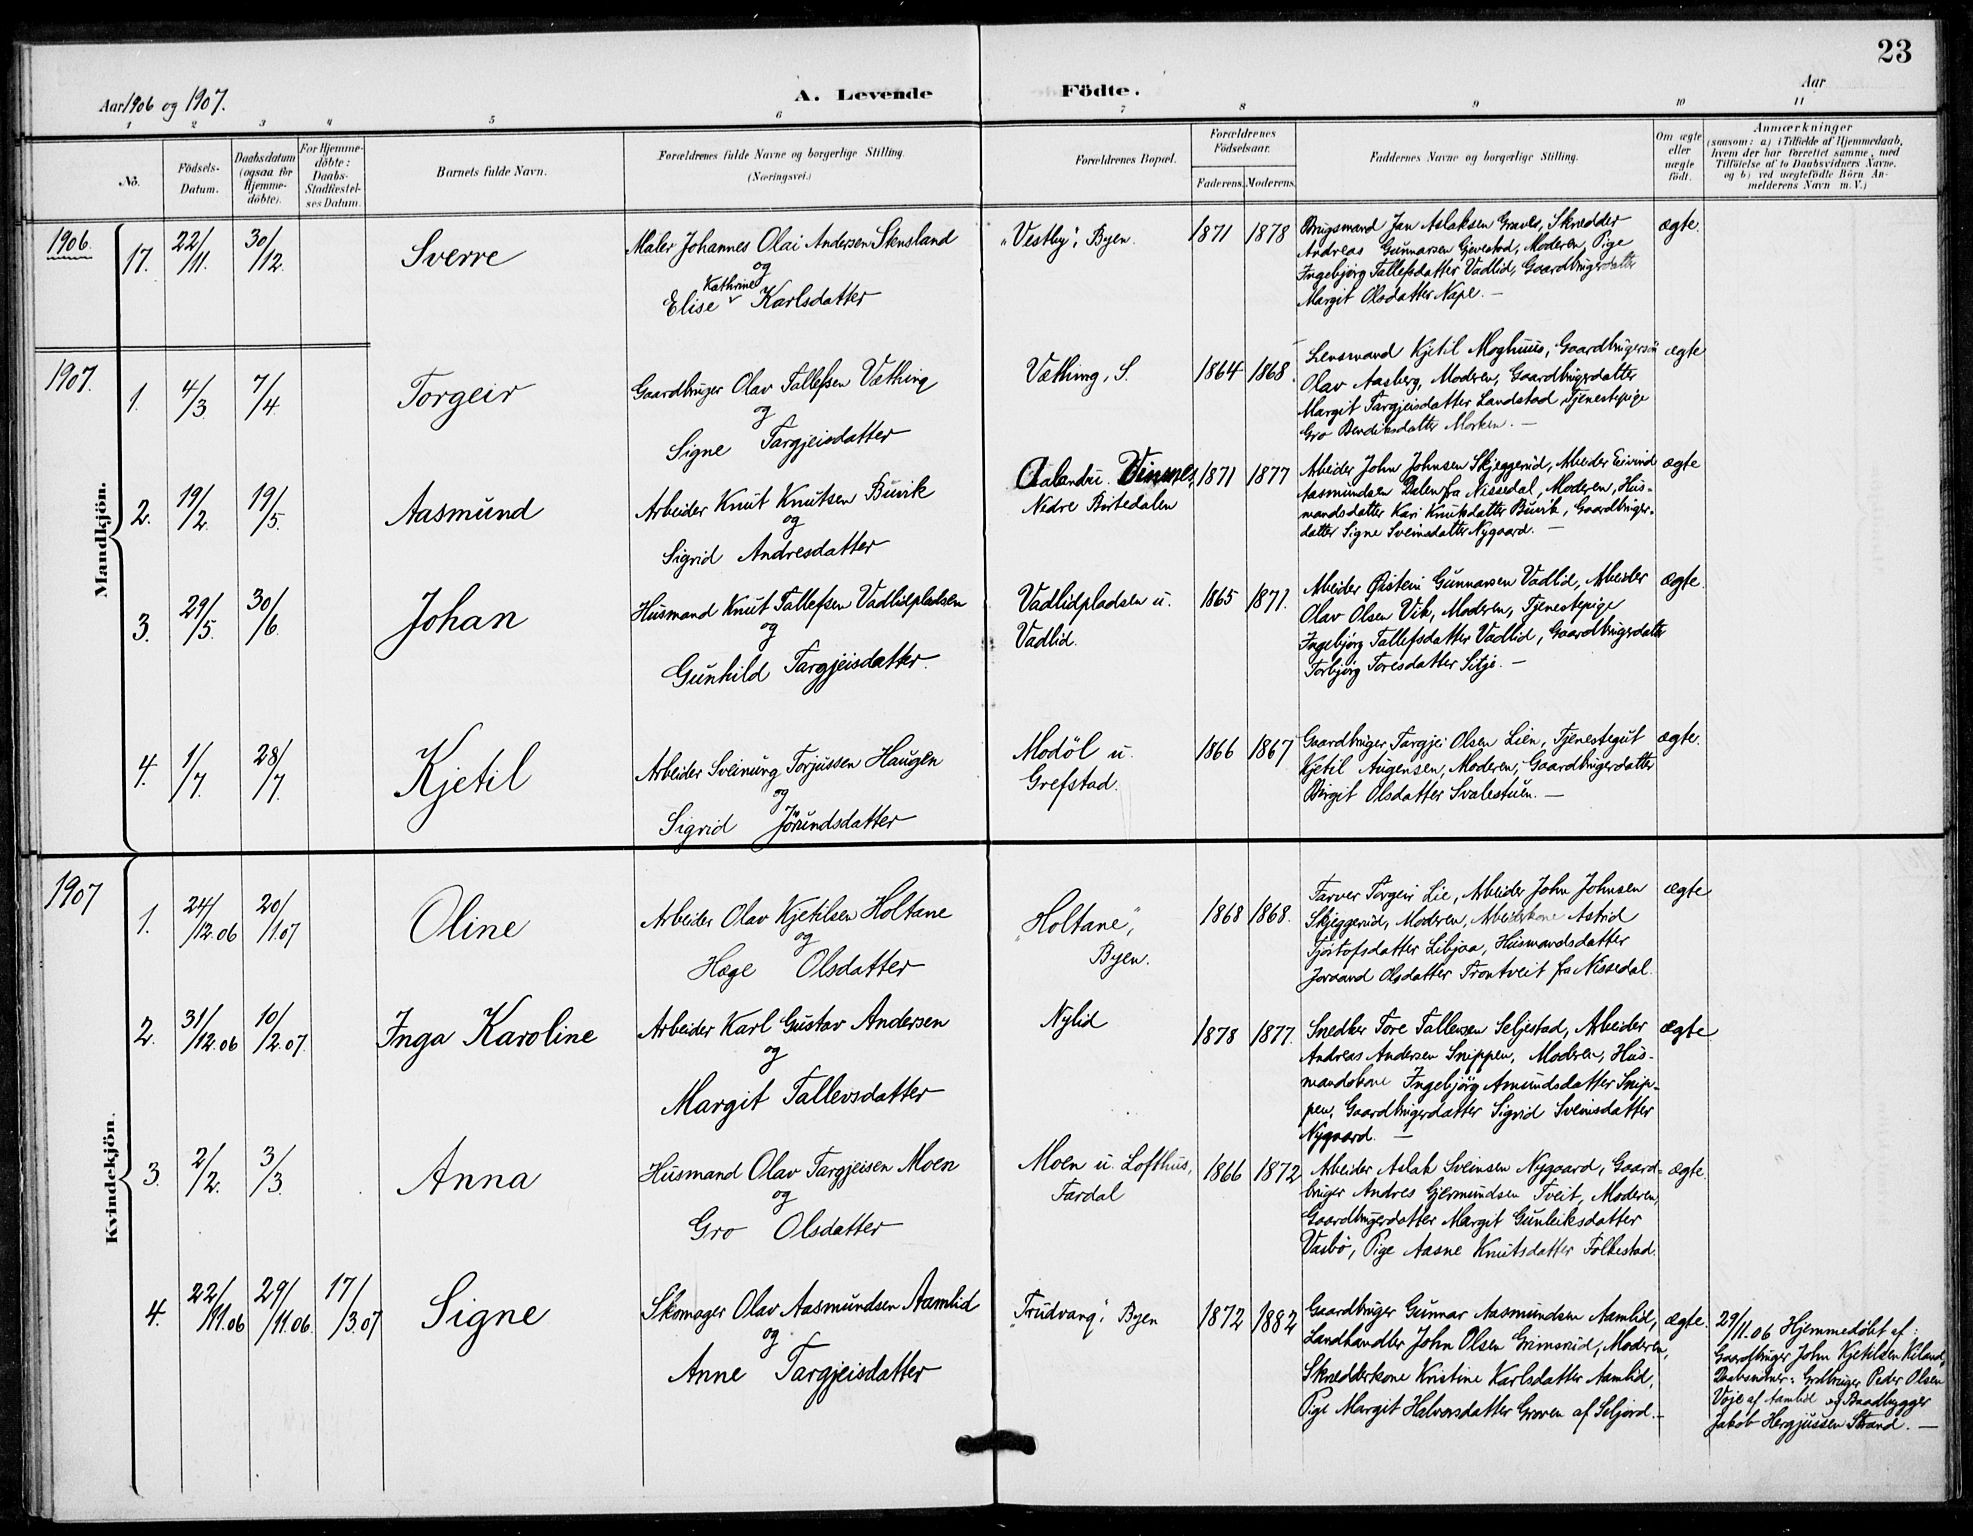 23
Aar 1906 og 1907.
A. Levende Födte.
Aar
1 2 3 4 5 6 7 8 9 10 11
No.
Födsels-Datum.
Daabsdatum (ogsaa for Hjemme-döbte).
For Hjemme-döbte: Daabs-Stadfæstel-ses Datum.
Barnets fulde Navn.
Forældrenes fulde Navne og borgerlige Stilling.
(Næringsvei.)
Forældrenes Bopæl.
Forældrenes Födselsaar.
Faderens. Moderens.
Faddernes Navne og borgerlige Stilling.
Om ægte eller uægte födt.
Anmærkninger
(saasom: a) i Tilfælde af Hjemmedaab,
hvem der har forrettet samme, med
Tilföielse af to Daabsvidners Navne.
og b) ved uægtefödte Börn An-
melderens Navn m. V.)
Mandkjön.
1906.
17. 22/11. 30/12. Sverre
Maler Johannes Olai Andersen Stensland
og
Kathrine
Elise Karlsdatter
"Vestby", Byen.
1871 1878
Brugsmand Jan Aslaksen Graver, Skrædder
Andreas Gunnarsen Gjevestad, Moderen, Pige
Ingebjörg Tallefsdatter Vadlid, Gaardbrugerdatter
Margit Olsdatter Nape. —
ægte.
1907.
1. 4/3. 7/4. Torgeir
Gaardbruger Olav Tallefsen Væthing
og
Signe Targjeisdatter
Væthing, S.
1864 1868.
Lensmand Kjetil Moghuus, Gaardbrugersön
Olav Aasberg, Moderen, Gaardbrugerdatter
Margit Targjeisdatter Landstad, Tjenestepige
Gro Bendiksdatter Morken. —
ægte
2. 19/2. 19/5. Aasmund
Arbeider Knut Knutsen Buvik
og
Sigrid Andresdatter
Vinsnes,
Nedre Birtedalen
1871 1877
Arbeider John Johnsen Skjeggerud, Arbeider Eivind
Aasmundsen Dalen fra Nissedal, Moderen, Hus-
mandsdatter Kari Knutsdatter Buvik, Gaardbruger-
datter Signe Sveinsdatter Nygaard. —
ægte
3. 29/5. 30/6. Johan
Husmand Knut Tallefsen Vadlidpladsen
og
Gunhild Targjeisdatter.
Vadlidpladsen u.
Vadlid.
1865 1871.
Arbeider Øistein Gunnarsen Vadlid, Arbeider
Olav Olsen Vik, Moderen, Tjenestepige
Ingebjörg Tallefsdatter Vadlid, Gaardbrugerdatter
Torbjörg Toresdatter Sitje. —
ægte.
4. 1/7. 28/7. Kjetil
Arbeider Sveinung Torjussen Haugen
og
Sigrid Jörundsdatter
Modöl u.
Grefstad.
1866 1867
Gaardbruger Targjei Olsen Lien, Tjenestegut
Kjetil Augensen, Moderen, Gaardbrugerdatter
Birgit Olsdatter Svalestuen. —
ægte.
Kvindekjön.
1907
1. 24/12.06 20/1.07 Oline
Arbeider Olav Kjetilsen Holtane
og
Hæge Olsdatter
"Holtane",
Byen.
1868 1868.
Farver Torgeir Lie, Arbeider John Johnsen
Skjeggerud, Moderen, Arbeiderkone Astrid
Tjöstofsdatter Libjaa, Husmandsdatter
Joraand Olsdatter Trontveit fra Nissedal.
ægte
2. 31/12.06 10/2.07. Inga Karoline
Arbeider Karl Gustav Andersen
og
Margit Tallevsdatter
Nylid
1878 1877.
Snedker Tore Tallevsen Seljestad, Arbeider
Andreas Andersen Snippen, Moderen, Hus-
mandskone Ingebjörg Amundsdatter Snip-
pen, Gaardbrugerdatter Sigrid Sveinsdatter
Nygaard. —
ægte
3. 2/2. 3/3. Anna
Husmand Olav Targjeisen Moen
og
Gro Olsdatter
Moen u. Lofthus,
Fardal
1866 1872
Arbeider Aslak Sveinsen Nygaard, Gaard-
bruger Andres Gjermundsen Tveit, Moderen,
Gaardbrugerdatter Margit Gunleiksdatter
Vasbö, Pige Aasne Knutsdatter Folkestad.
ægte.
4. 22/11.06 29/11.06. 17/3.07 Signe
Skomager Olav Aasmundsen Aamlid
og
Anne Targjeisdatter
"Trudvang", Byen
1872 1882
Gaardbruger Gunnar Aasmundsen Aamlid,
Landhandler John Olsen Grimsrud, Moderen,
Skrædderkone Kristine Karlsdatter Aamlid,
Pige Margit Halvorsdatter Groven af Seljord. —
ægte.
29/11.06 Hjemmedöbt af:
Gaardbruger John Kjetilsen Kiland,
Daabsvidner: Grdbruger Peder Olsen
Voje af Aamlid og Baadbygger
Jakob Hergjussen Strand. —